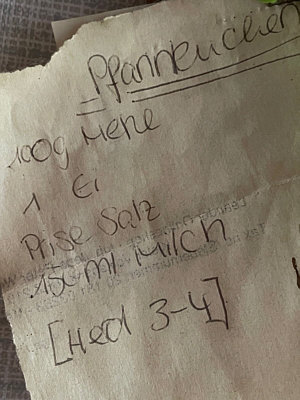 Pfannkuchen
100g Mehl
1 Ei
Prise Salz
150ml Milch
[Herd 3-4]